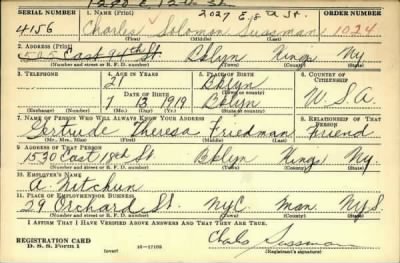 2027 E. 18th St.
SERIAL NUMBER 1. NAME (Print) ORDER NUMBER
4156 Charles Solomon Sussman 1024
(First) (Middle) (Last)
2. ADDRESS (Print)
East 94th St. Bklyn Kings Ny
(Number and street or R. F. D. number) (Town) (County) (State)
3. TELEPHONE 4. AGE IN YEARS 5. PLACE OF BIRTH 6. COUNTRY OF CITIZENSHIP
21 Bklyn
DATE OF BIRTH (Town or county)
7 13 1919 Bklyn U.S.A.
(Exchange) (Number) (Mo.) (Day) (Yr.) (State or country)
7. NAME OF PERSON WHO WILL ALWAYS KNOW YOUR ADDRESS 8. RELATIONSHIP OF THAT PERSON
Gertrude Theresa Friedman Friend
(Mr., Mrs., Miss) (First) (Middle) (Last)
9. ADDRESS OF THAT PERSON
1530 East 18th St. Bklyn Kings Ny.
(Number and street or R. F. D. number) (Town) (County) (State)
10. EMPLOYER'S NAME
A. Nitchun
11. PLACE OF EMPLOYMENT OR BUSINESS
29 Orchard St. NyC Man. NyS
(Number and street or R. F. D. number) (Town) (County) (State)
I AFFIRM THAT I HAVE VERIFIED ABOVE ANSWERS AND THAT THEY ARE TRUE.
REGISTRATION CARD
D. S. S. Form 1 (over) 16—17105
Chales Sussman
(Registrant's signature)